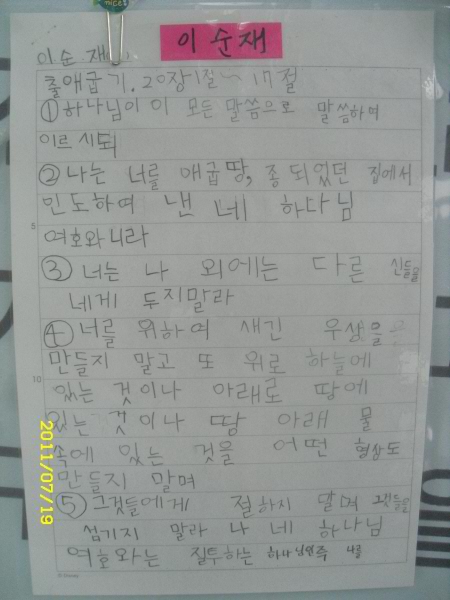 이순재
이 순 재
출애굽기. 20장1절~17절
① 하나님이 이 모든 말씀으로 말씀하여
이르시되
② 나는 너를 애굽땅, 종되었던 집에서
인도하여 낸 네 하나님
5
여호와니라
③ 너는 나 외에는 다른 신들을
네게 두지말라
④ 너를 위하여 새긴 우상을
만들지 말고 또 위로 하늘에
10
있는 것이나 아래로 땅에
있는 것이나 땅 아래 물
속에 있는 것을 어떤 형상도
만들지 말며
⑤ 그것들에게 절하지 말며 그것들을
섬기지 말라 나 네 하나님
여호와는 질투하는 하나님인즉 나를
2011/07/19